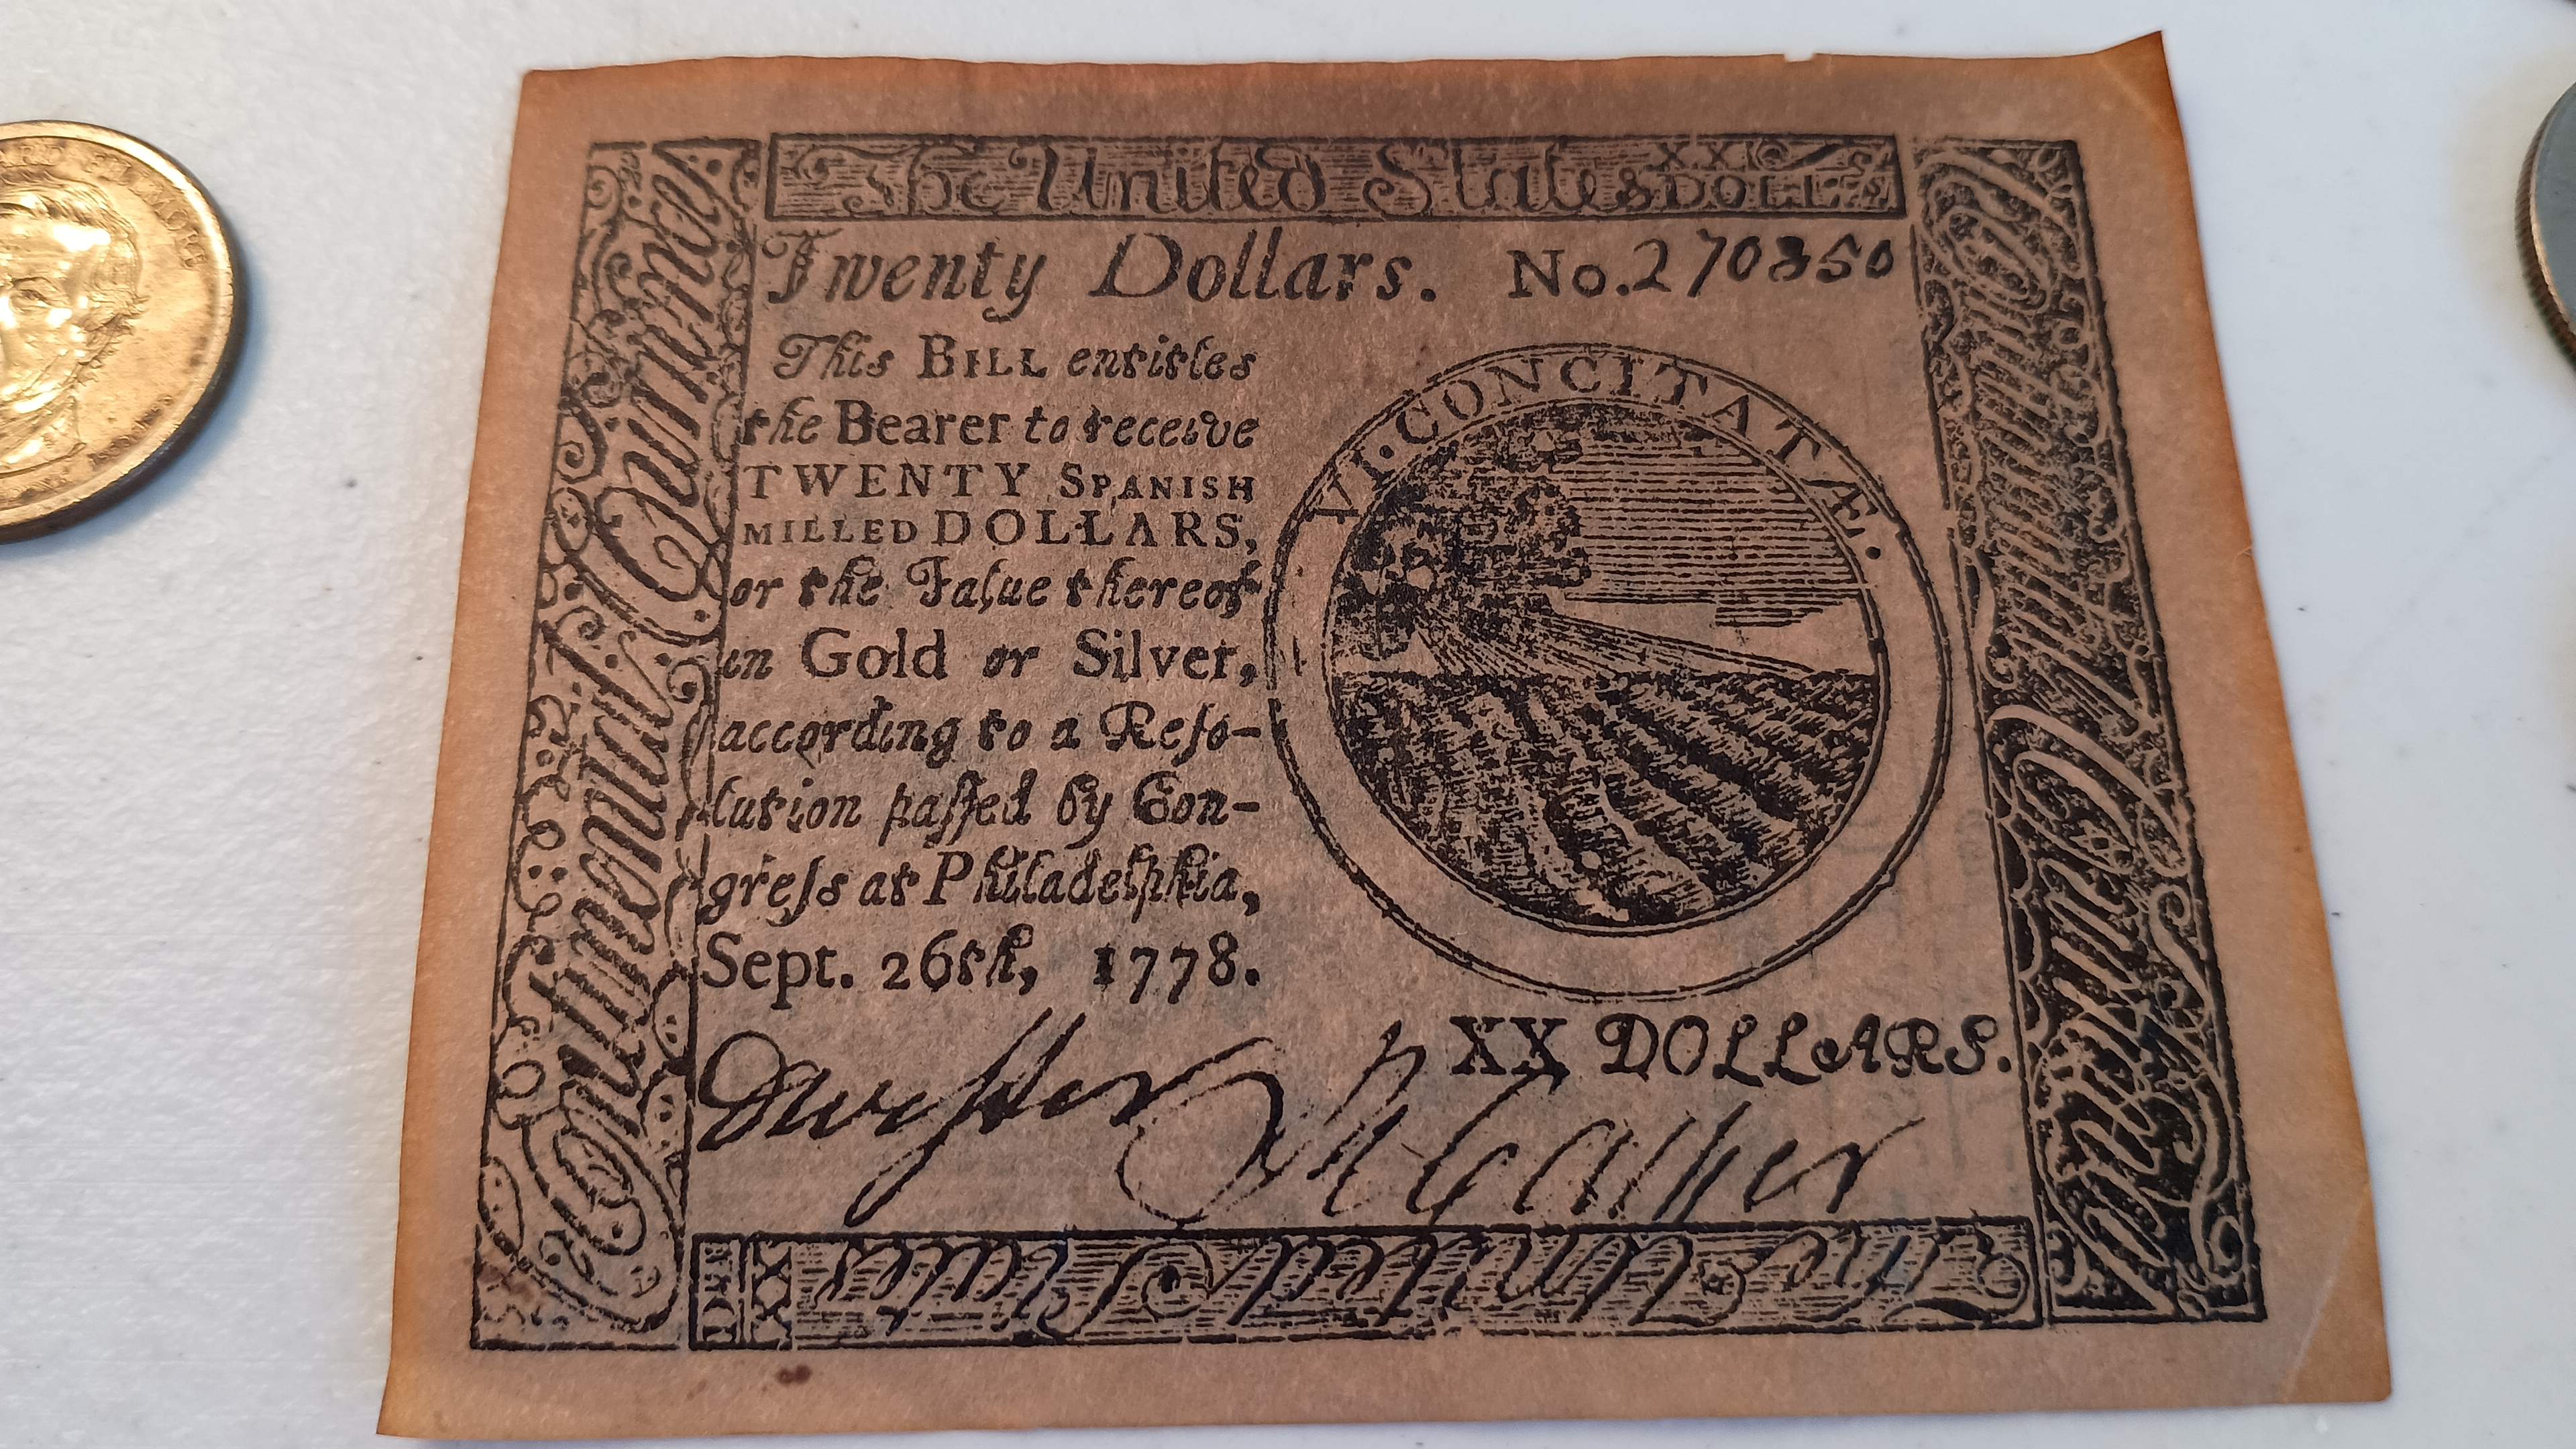 The United States
XX DOLLS
Twenty Dollars. No. 270350
This BILL entitles
the Bearer to receive
TWENTY SPANISH
MILLED DOLLARS,
or the Value thereof
in Gold or Silver,
according to a Reſo-
lution paſſed by Con-
greſs at Philadelphia,
Sept. 26th, 1778.
VI. CONCITATÆ.
XX DOLLARS.
Continental Currency
Continental Currency
The United States
XX